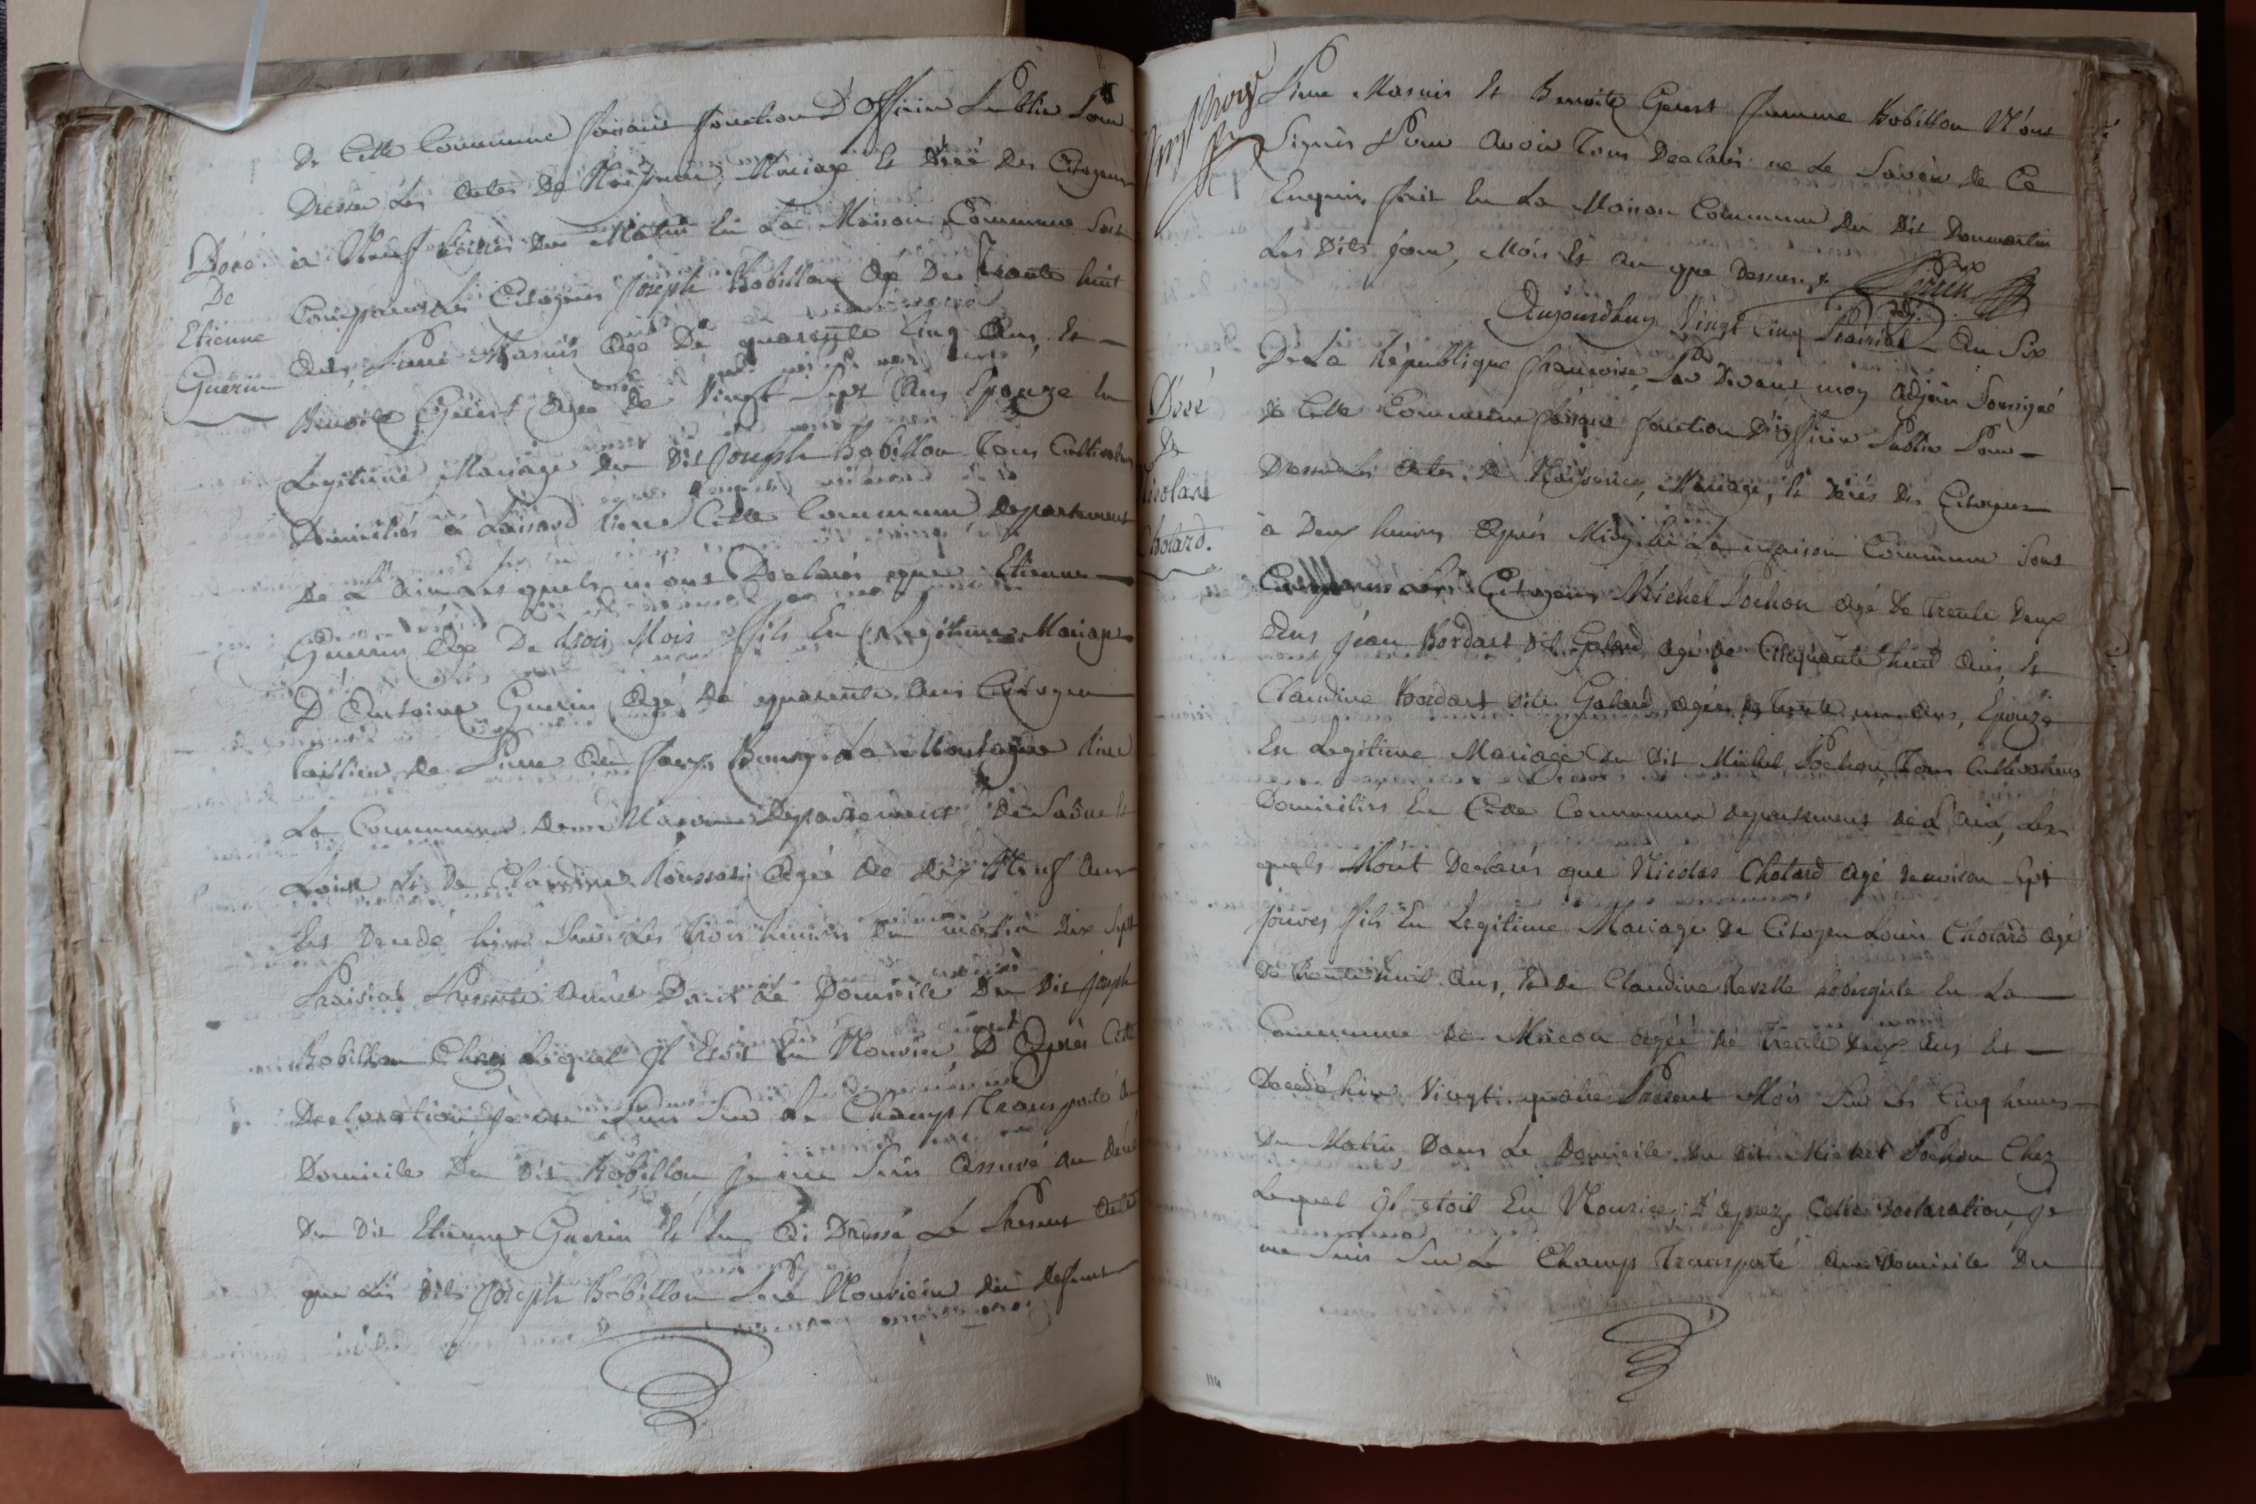 De Cette Commune faisant fonction D'officier Public Pour
Dresser Les actes De Naissance, Mariage Et Décé Des Citoyens
à Neuf heures Du Matin En La Maison Commune Sont
Comparus les Citoyens Joseph Robillon Agé De Trante huit
ans, Pierre Masuis Agé De quarente Cinq Ans, Et
Benoite Geurt Agée De Vingt Sept Ans Epouze En
Legitime Mariage Du Dit Joseph Robillon Tous Cultivateurs
Domiciliés a Laissard Riere Cette Commune Departement
De L'Ain Les quels m'ont Declarés que Etienne
Guerin Agé De trois Mois fils En Legitime Mariage
D'Antoine Guerin Agé de quarente Ans Citoyen
tallieur de Pierre Au Bourg La Montagne Riere
La Commune De Macon Departement De Saône Et
Loire Et De Claudine Agée de dix Neuf Ans
Est Decedé hier Sur Les trois heures Du matin dix Sept
Prairial Presente Année Dans Le Domicile Du Dit Joseph
Robillon Chez Lequel Il Etoit En Nourice D'Après Cette
Declaration je me Suis Sur Le Champs Transporté au
Domicile Du Dit Robillon je me Suis Assuré du Décé
Du Dit Etienne Guerin Et En Ai Dressé Le Present Acte
que Les Dits Joseph Robillon Pere Nouricier Du Deffunt
Décé
De
Etienne
Guerin
Pierre Masuis Et Benoite Geurt femme Robillon N'ont
Signés Pour Avoir Tous Declarés ne Le Savoir de Ce
Enquis, fait En La Maison Commune Du Dit Dommartin
Les Dits jour, Mois Et an que Dessus
Aujourdhuy Vingt Cinq Prairial An Six
De La Republique françoise, Par Devant moy Adjoin Soussigné
de Cette Commune faisant fonction D'officier Public Pour
Dresser Les Actes de Naissance, Mariage, Et Décés Des Citoyens
à Deux heures Après Midy En La maison Commune Sont
Comparus Les Citoyens Michel Pochon Agé de Trente deux
Ans Jean Bordart dit Galand agé de Cinquante huit Ans, Et
Claudine Bordart dite Galand agée de trente un ans, Epouze
En Legitime Mariage Du Dit Michel Pochon, Tous Cultivateurs
Domiciliés En Cette Commune departement de L'Ain, Les
quels M'ont Declarés que Nicolas Chotard Agé d'environ Sept
jours fils En Legitime Mariage De Citoyen Louis Chotard Agé
de trente huit Ans, Et De Claudine En La
Commune De Macon agée de Trente deux Ans Est
Decedé hier Vingt quatre Present Mois Sur Les Cinq heures
Du Matin, Dans Le Domicile Du Dit Michel Pochon Chez
Lequel Il etoit En Nourice; D'Aprez Cette Declaration, je
me Suis Sur Le Champs Transporté Au Domicile Du
Décé
De
Nicolas
Chotard.
114